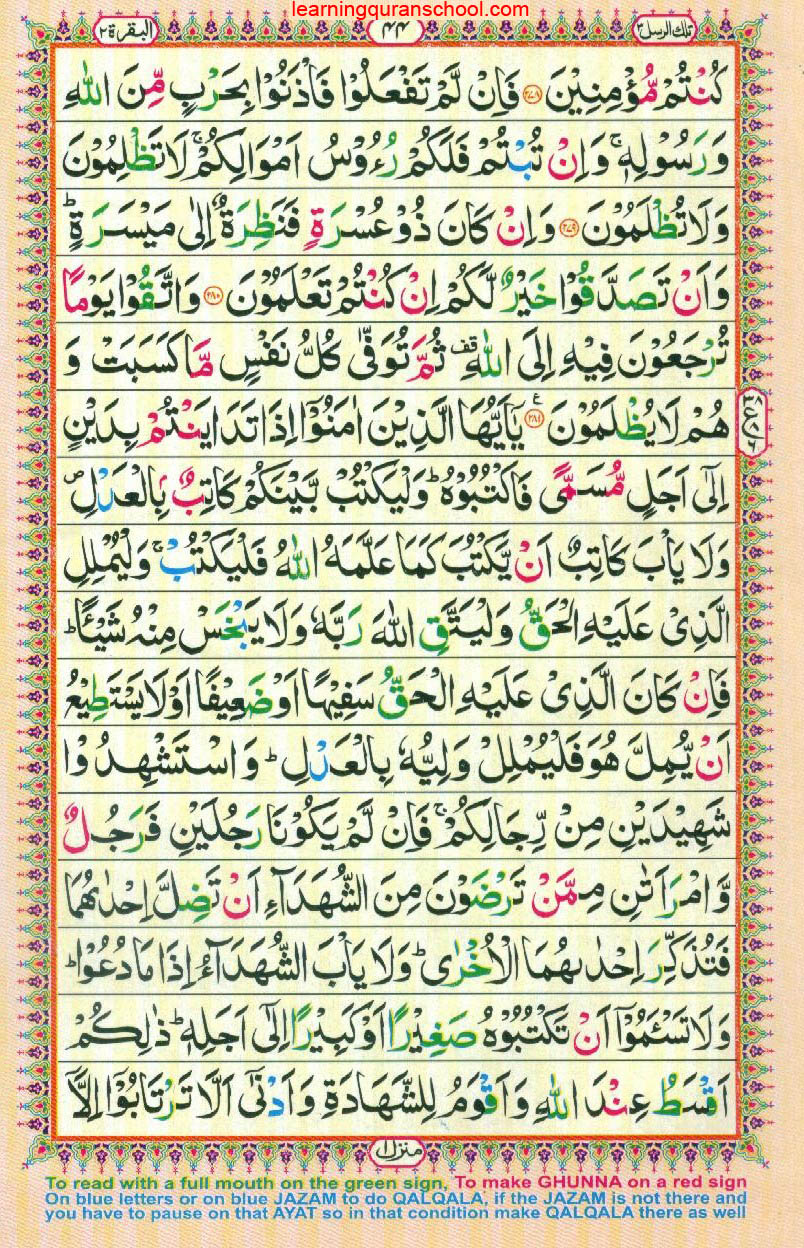 learningquranschool.com
تلك الرسل ٣ ٤٤ البقرة ٢
كُنْتُمْ مُّؤْمِنِيْنَ ﴿۲۷۸﴾ فَاِنْ لَّمْ تَفْعَلُوْا فَاْذَنُوْا بِحَرْبٍ مِّنَ اللّٰهِ
وَرَسُوْلِهٖ ۚ وَاِنْ تُبْتُمْ فَلَكُمْ رُءُوْسُ اَمْوَالِكُمْ ۚ لَا تَظْلِمُوْنَ
وَلَا تُظْلَمُوْنَ ﴿۲۷۹﴾ وَاِنْ كَانَ ذُوْ عُسْرَةٍ فَنَظِرَةٌ اِلٰى مَيْسَرَةٍ ؕ
وَاَنْ تَصَدَّقُوْا خَيْرٌ لَّكُمْ اِنْ كُنْتُمْ تَعْلَمُوْنَ ﴿۲۸۰﴾ وَاتَّقُوْا يَوْمًا
تُرْجَعُوْنَ فِيْهِ اِلَى اللّٰهِ ۗ قف ثُمَّ تُوَفّٰى كُلُّ نَفْسٍ مَّا كَسَبَتْ وَ
هُمْ لَا يُظْلَمُوْنَ ﴿۲۸۱﴾ ع يٰۤاَيُّهَا الَّذِيْنَ اٰمَنُوْۤا اِذَا تَدَايَنْتُمْ بِدَيْنٍ
اِلٰۤى اَجَلٍ مُّسَمًّى فَاكْتُبُوْهُ ؕ وَلْيَكْتُبْ بَّيْنَكُمْ كَاتِبٌۢ بِالْعَدْلِ ۪
وَلَا يَاْبَ كَاتِبٌ اَنْ يَّكْتُبَ كَمَا عَلَّمَهُ اللّٰهُ فَلْيَكْتُبْ ۚ وَلْيُمْلِلِ
الَّذِيْ عَلَيْهِ الْحَقُّ وَلْيَتَّقِ اللّٰهَ رَبَّهٗ وَلَا يَبْخَسْ مِنْهُ شَيْـًٔا ؕ
فَاِنْ كَانَ الَّذِيْ عَلَيْهِ الْحَقُّ سَفِيْهًا اَوْ ضَعِيْفًا اَوْ لَا يَسْتَطِيْعُ
اَنْ يُّمِلَّ هُوَ فَلْيُمْلِلْ وَلِيُّهٗ بِالْعَدْلِ ؕ وَاسْتَشْهِدُوْا
شَهِيْدَيْنِ مِنْ رِّجَالِكُمْ ۚ فَاِنْ لَّمْ يَكُوْنَا رَجُلَيْنِ فَرَجُلٌ
وَّامْرَاَتٰنِ مِمَّنْ تَرْضَوْنَ مِنَ الشُّهَدَآءِ اَنْ تَضِلَّ اِحْدٰىهُمَا
فَتُذَكِّرَ اِحْدٰىهُمَا الْاُخْرٰى ؕ وَلَا يَاْبَ الشُّهَدَآءُ اِذَا مَا دُعُوْا ؕ
وَلَا تَسْـَٔمُوْۤا اَنْ تَكْتُبُوْهُ صَغِيْرًا اَوْ كَبِيْرًا اِلٰۤى اَجَلِهٖ ؕ ذٰلِكُمْ
اَقْسَطُ عِنْدَ اللّٰهِ وَاَقْوَمُ لِلشَّهَادَةِ وَاَدْنٰۤى اَلَّا تَرْتَابُوْۤا اِلَّاۤ
منزل ١
To read with a full mouth on the green sign, To make GHUNNA on a red sign
On blue letters or on blue JAZAM to do QALQALA, if the JAZAM is not there and
you have to pause on that AYAT so in that condition make QALQALA there as well